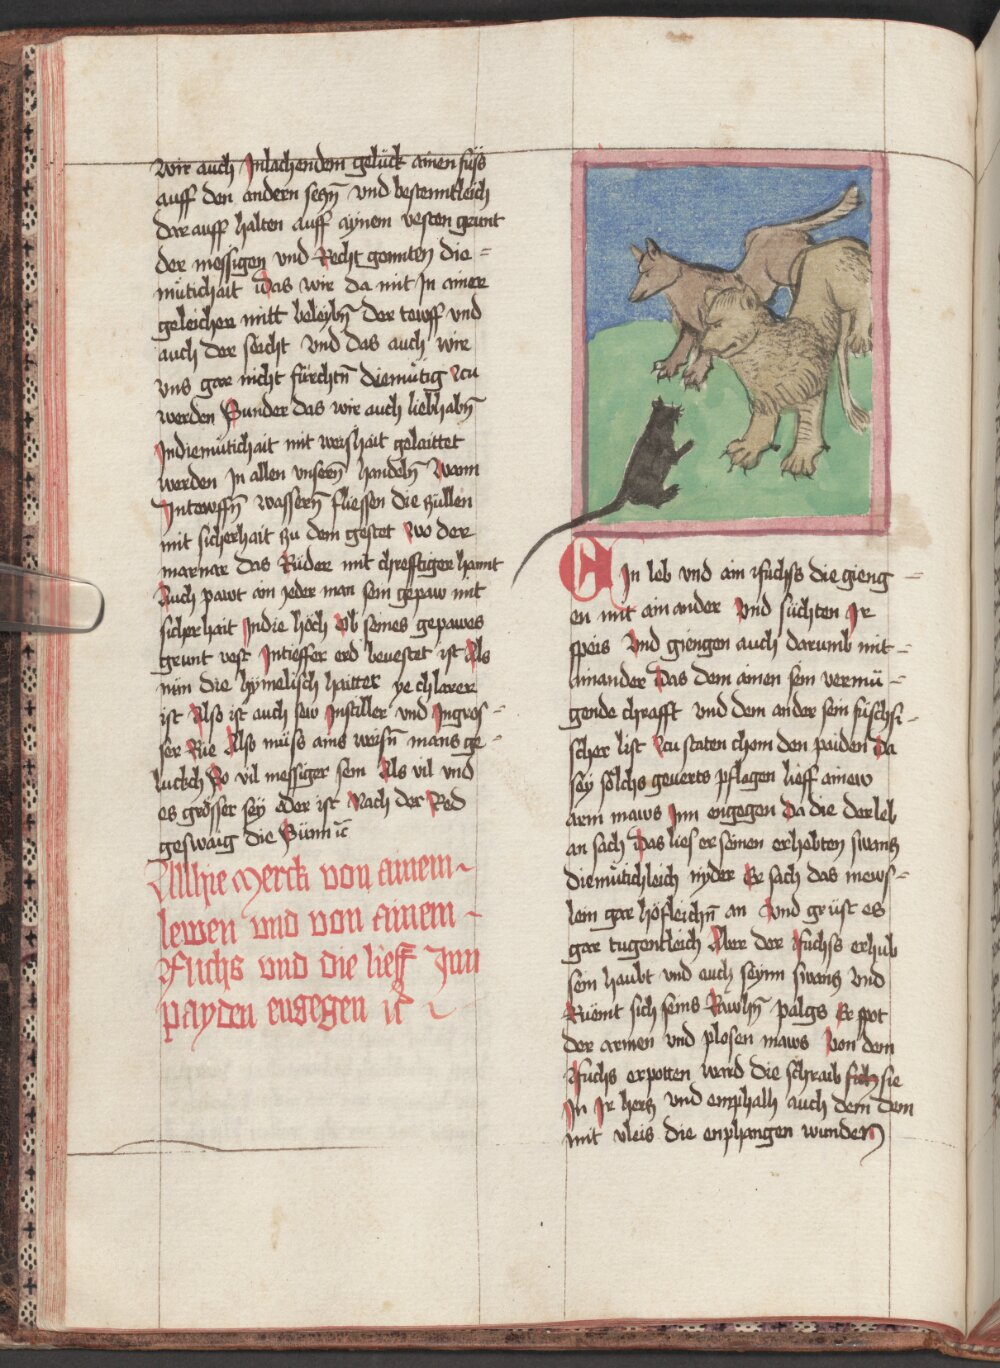 Wir auch Inlachendem gelück ainen fuͤs
auff den andern seczn̄ vnd bestenntleich
dar auff halten auff aynem vesten grunt
der messigen vnd Recht gennten die=
mütichait Das wir da mit In ainer
geleichen mitt beleybn̄ Der tewff vnd
auch der seicht Vnd das auch wir
vns gar nicht fürchtn̄ diemütig czu
werden Sunder das wir auch liebhabn̄
Indiemütichait mit weishait gelaittet
werden In allen vnsern̄ handeln̄ Wann
Intewffn̄ wassern̄ fliessen die züllen
mit sicherhait zu dem gestet wo der
marnar das Rüder mit chrefftiger hannt
Auch pawt ain yeder man sein gepaw mit
sicherhait Indie höch Ob seines gepawes
grunt vest Intieffer erd bevestet ist Als
nün die hymelisch haitter ye chlarer
ist Also ist auch sew Instiller vnd Ingros=
ser Rie Also müss ains weisn̄ mans ge=
luckch So vil messiger sein Als vil vnd
es grösser sey oder ist Nach der Red
geswaig die Sünn ꝛc
Allhie Merck von ainem
lewen vnd von ainem
Fuchs vnd die lieff Inn
payden engegen ꝛc
EIn leb vnd ain Fuchss die gieng=
en mit ain ander Vnd süchten Ir
speis Vnd giengen auch darumb mit=
ainander Das dem ainen sein vermü=
gende chrafft vnd dem ander sein füchsi=
scher list czu staten chom den paiden Da
sey sölchs geverts pflagen lieff ainew
arm maws Inn engegen Da die der leb
an sach Das lies er seinen erhebten swancz
diemütichleich nyder Er sach das mews=
lein gar höfleichn̄ an Vnd grüst es
gar tugentleich Aber der Fuchss erhub
sein haubt vnd auch seynn swancz Vnd
Rüemt sich seins Rawhn̄ palgs Er spot
der armen vnd plosen maws Von dem
Fuchs erpotten ward die schraib sich sie
In Ir hercz vnd emphalh auch dem dem
mit vleis die enphangen wunden